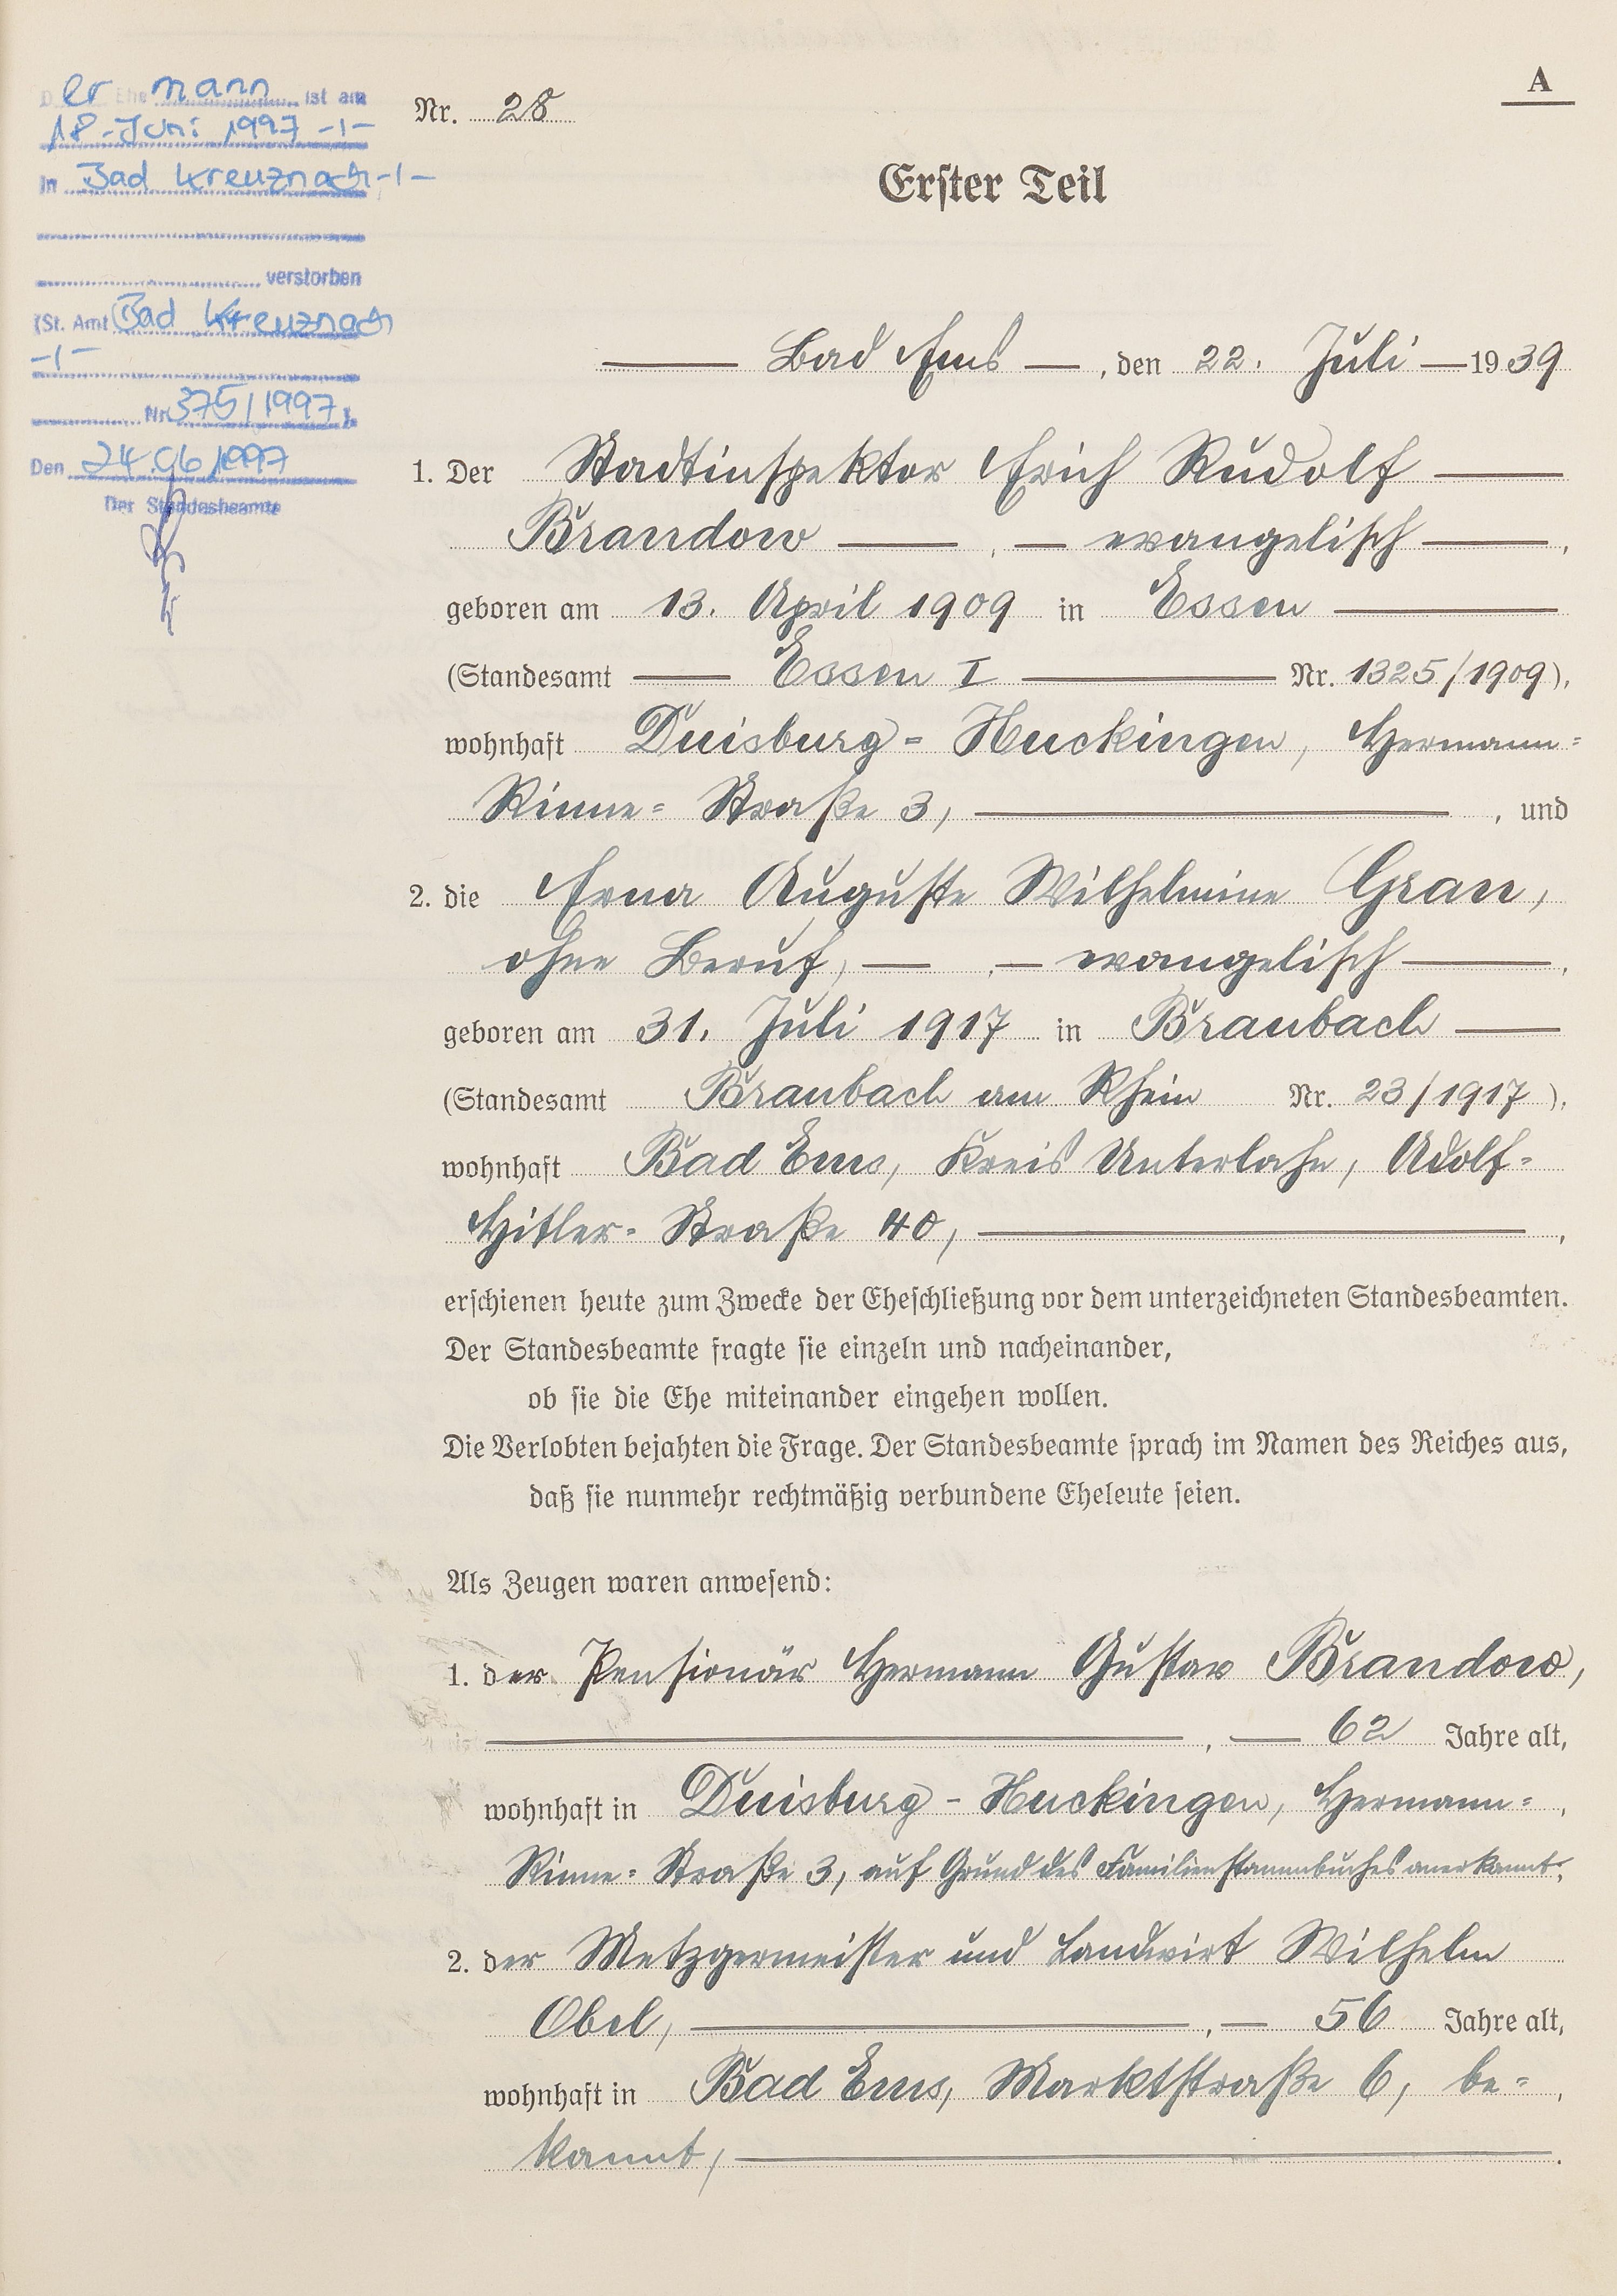 Der Ehemann ist am
18. Juni 1997 -/-
in Bad Kreuznach -/-
verstorben
(St. Amt Bad Kreuznach
-/-
Nr. 375/1997).
Den 24.06.1997
Der Standesbeamte
A
Nr. 28
Erster Teil
Bad Ems, den 22. Juli 1939
1. Der Stadtinspektor Erich Rudolf
Brandow, evangelisch,
geboren am 13. April 1909 in Essen
(Standesamt Essen I Nr. 1325/1909),
wohnhaft Duisburg-Huckingen, Hermann=
Rinne=Straße 3, , und
2. die Erna Auguste Wilhelmine Grau,
ohne Beruf, , evangelisch,
geboren am 31. Juli 1917 in Braubach
(Standesamt Braubach am Rhein Nr. 23/1917),
wohnhaft Bad Ems, Kreis Unterlahn, Adolf=
Hitler=Straße 40, ,
erschienen heute zum Zwecke der Eheschließung vor dem unterzeichneten Standesbeamten.
Der Standesbeamte fragte sie einzeln und nacheinander,
ob sie die Ehe miteinander eingehen wollen.
Die Verlobten bejahten die Frage. Der Standesbeamte sprach im Namen des Reiches aus,
daß sie nunmehr rechtmäßig verbundene Eheleute seien.
Als Zeugen waren anwesend:
1. der Pensionär Hermann Gustav Brandow,
, 62 Jahre alt,
wohnhaft in Duisburg-Huckingen, Hermann=,
Rinne=Straße 3, auf Grund des Familienstammbuches anerkannt,
2. der Metzgermeister und Landwirt Wilhelm
Obel, , 56 Jahre alt,
wohnhaft in Bad Ems, Marktstraße 6, be=,
kannt, .